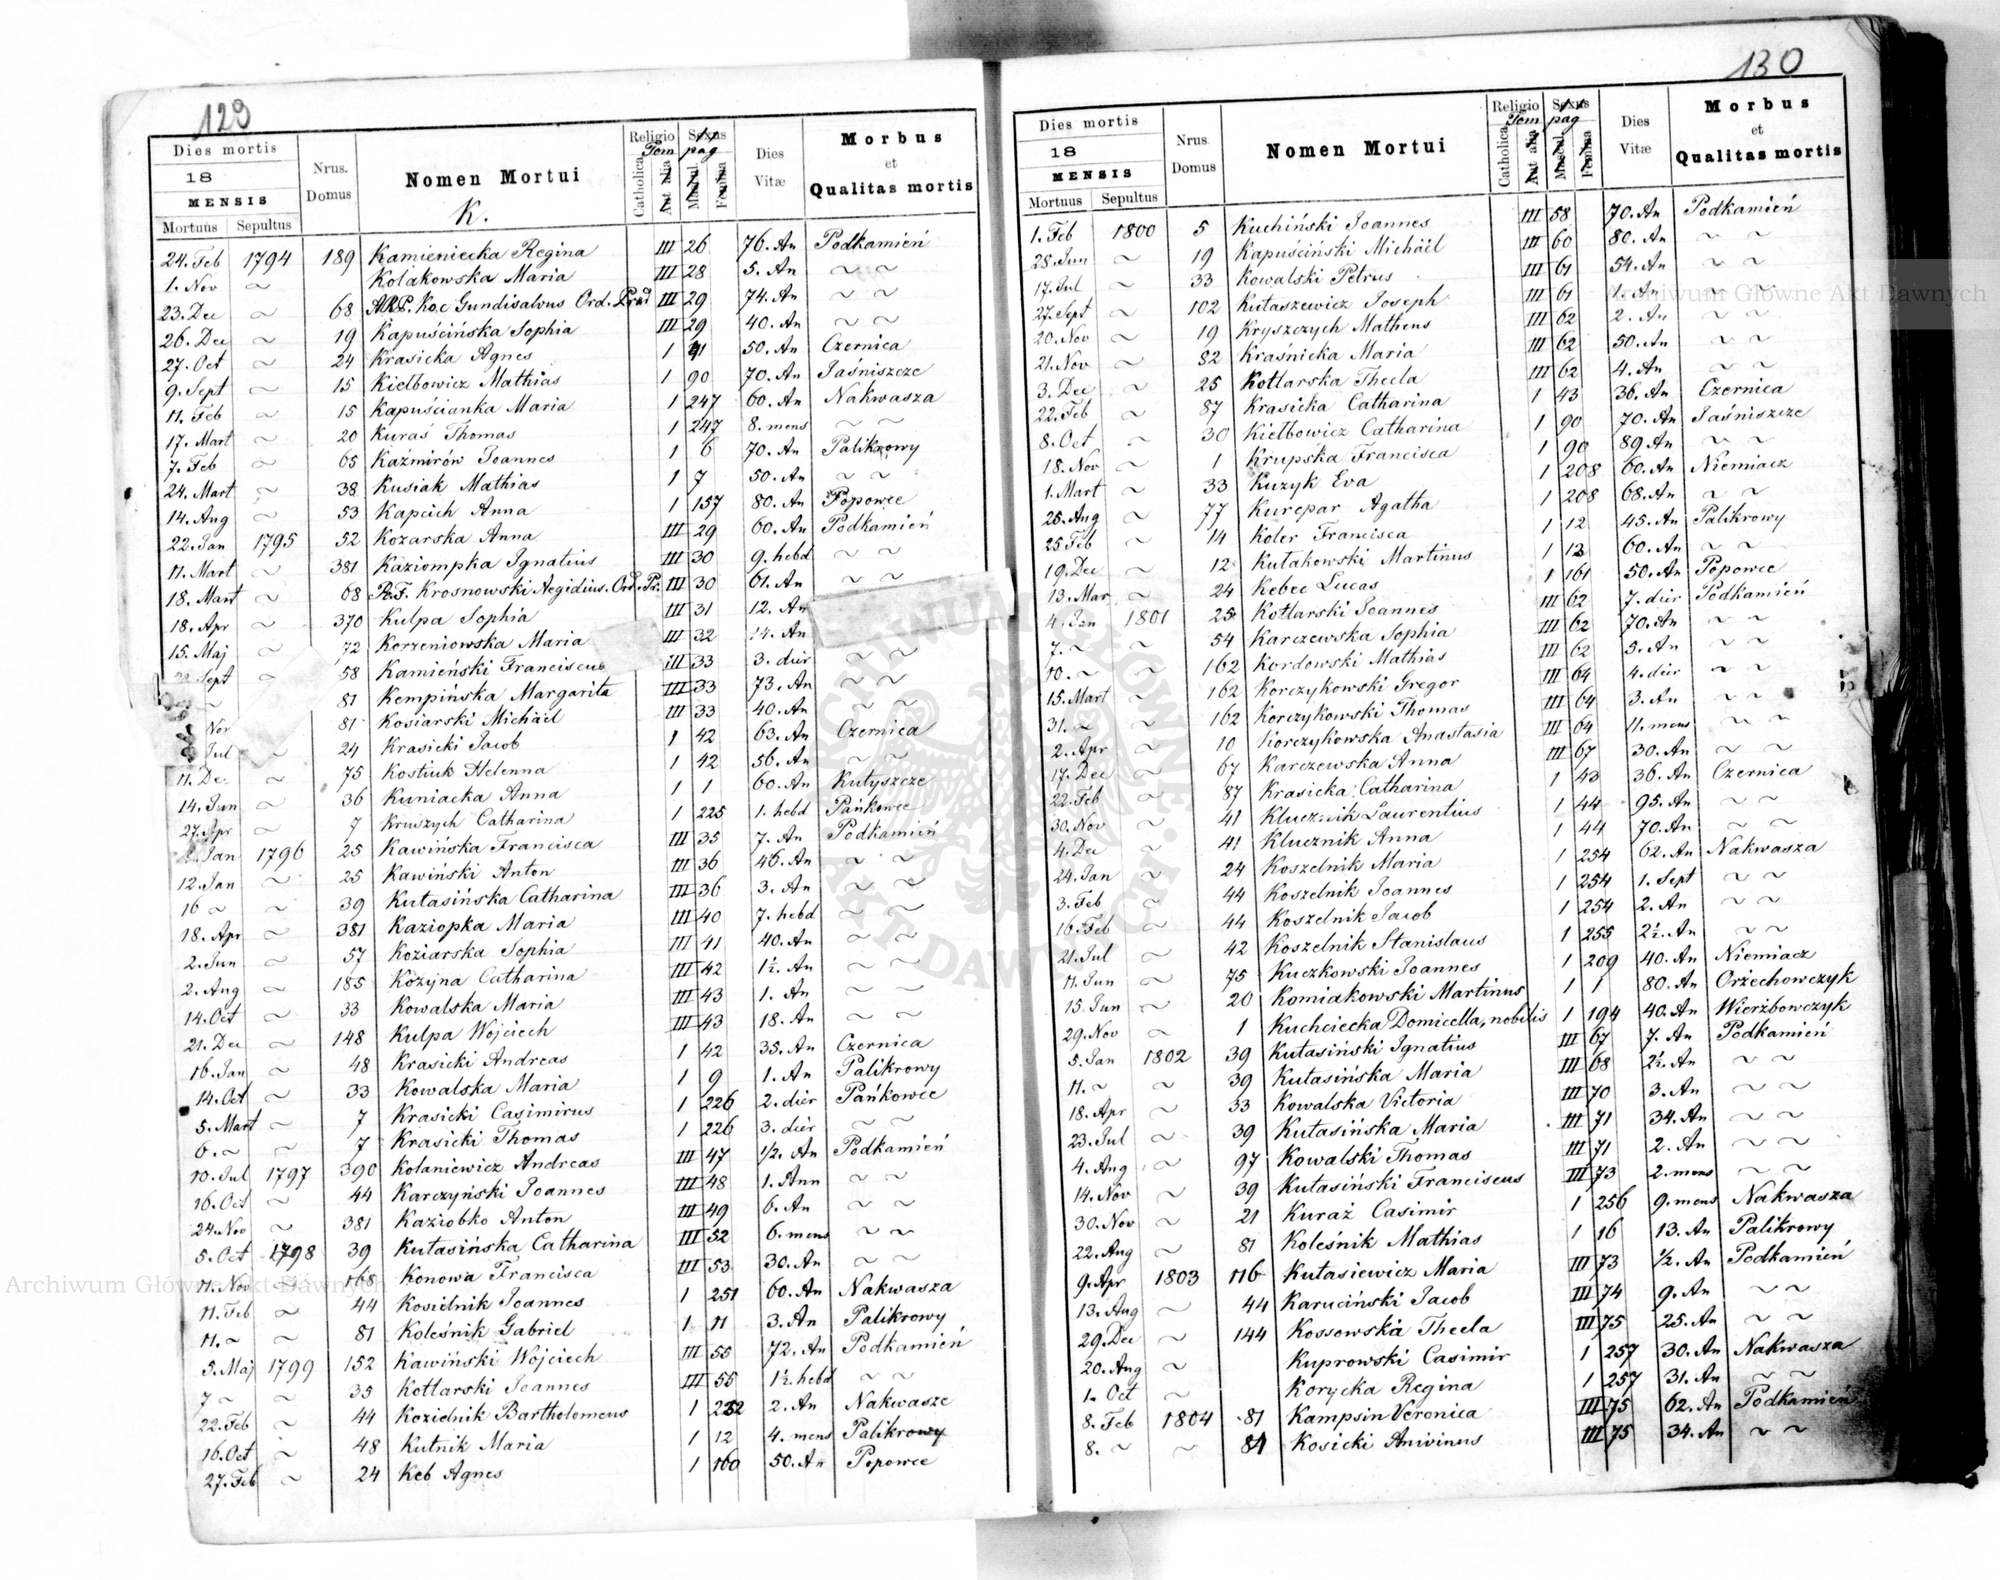 129
Dies mortis
18
MENSIS
Mortuus Sepultus
Nrus. Domus
Nomen Mortui
K.
Religio Tom
Catholica Aut alia
Sexus pag
Mascul. Femina
Dies Vitæ
Morbus et Qualitas mortis
24. Feb 1794 189 Kamieniecka Regina III 26 76. An Podkamień
1. Nov ~ Kolakowska Maria III 28 5. An ~ ~
23. Dec ~ 68 A.R.P. Koc Gundisalvus Ord. Præd III 29 74. An ~ ~
26. Dec ~ 19 Kapuścińska Sophia III 29 40. An ~ ~
27. Oct ~ 24 Krasicka Agnes 1 41 50. An Czernica
9. Sept ~ 15 Kiełbowicz Mathias 1 90 70. An Jaśniszcze
11. Feb ~ 15 Kapuścianka Maria 1 247 60. An Nakwasza
17. Mart ~ 20 Kuraś Thomas 1 247 8. mens ~ ~
7. Feb ~ 65 Kaźmirów Joannes 1 6 70. An Palikrowy
24. Mart ~ 38 Kusiak Mathias 1 7 50. An ~ ~
14. Aug ~ 53 Kapcich Anna 1 157 80. An Popowce
22. Jan 1795 52 Kozarska Anna III 29 60. An Podkamień
11. Mart ~ 381 Kaziompka Ignatius III 30 9. hebd ~ ~
18. Mart ~ 68 P.F. Krosnowski Aegidius. Ord. Pr. III 30 61. An ~ ~
18. Apr ~ 370 Kulpa Sophia III 31 12. An
15. Maj ~ 72 Korzeniowska Maria III 32 14. An
Sept ~ 58 Kamieński Franciscus III 33 3. dier ~ ~
~ 81 Kempińska Margarita III 33 73. An ~ ~
Nov 81 Kosiarski Michäel III 33 40. An ~ ~
Jul ~ 24 Krasicki Jacob 1 42 63. An Czernica
11. Dec ~ 75 Kostiuk Helenna 1 42 56. An ~ ~
14. Jun ~ 36 Kuniacka Anna 1 1 60. An Kutyszcze
27. Apr ~ 7 Kruszych Catharina 1 225 1. hebd Pańkowce
Jan 1796 25 Kawińska Francisca III 35 7. An Podkamień
12. Jan ~ 25 Kawiński Anton III 36 46. An ~ ~
16 ~ ~ 39 Kutasińska Catharina III 36 3. An ~ ~
18. Apr ~ 381 Kaziopka Maria III 40 7. hebd ~ ~
2. Jun ~ 57 Koziarska Sophia III 41 40. An ~ ~
2. Aug ~ 185 Kożyna Catharina III 42 1½. An ~ ~
14. Oct ~ 33 Kowalska Maria III 43 1. An ~ ~
21. Dec ~ 148 Kulpa Wojciech III 43 18. An ~ ~
16. Jan ~ 48 Krasicki Andreas 1 42 35. An Czernica
14. Oct ~ 33 Kowalska Maria 1 9 1. An Palikrowy
5. Mart ~ 7 Krasicki Casimirus 1 226 2. dier Pańkowce
6. ~ ~ 7 Krasicki Thomas 1 226 3. dier ~ ~
10. Jul 1797 390 Kolaniewicz Andreas III 47 1/2. An Podkamień
16. Oct ~ 44 Karczyński Joannes III 48 1. Ann ~ ~
24. Nov ~ 381 Kaziobko Anton III 49 6. An ~ ~
5. Oct 1798 39 Kutasińska Catharina III 52 6. mens ~ ~
11. Nov ~ 168 Konowa Francisca III 53 30. An ~ ~
11. Feb ~ 44 Kosielnik Joannes 1 251 60. An Nakwasza
11. ~ ~ 81 Koleśnik Gabriel 1 11 3. An Palikrowy
5. Maj 1799 152 Kawiński Wojciech III 55 72. An Podkamień
7 ~ ~ 35 Kotlarski Joannes III 55 1½. hebd ~ ~
22. Feb ~ 44 Kozielnik Bartholomeus 1 252 2. An Nakwasze
16. Oct ~ 48 Kutnik Maria 1 12 4. mens Palikrowy
27. Feb ~ 24 Keb Agnes 1 160 50. An Popowce
130
Dies mortis
18
MENSIS
Mortuus Sepultus
Nrus. Domus
Nomen Mortui
Religio Tom
Catholica Aut alia
Sexus pag
Mascul. Femina
Dies Vitæ
Morbus et Qualitas mortis
1. Feb 1800 5 Kuchiński Joannes III 58 70. An Podkamień
28. Jun ~ 19 Kapuściński Michäel III 60 80. An ~ ~
17. Jul ~ 33 Kowalski Petrus III 61 54. An ~ ~
27. Sept ~ 102 Kutaszewicz Joseph III 61 1. An ~ ~
20. Nov ~ 19 Kryszczych Matheus III 62 2. An ~ ~
21. Nov ~ 82 Kraśnicka Maria III 62 50. An ~ ~
3. Dec ~ 25 Kotlarska Thecla III 62 4. An ~ ~
22. Feb ~ 87 Krasicka Catharina 1 43 36. An Czernica
8. Oct ~ 30 Kiełbowicz Catharina 1 90 70. An Jaśniszcze
18. Nov ~ 1 Krupska Francisca 1 90 89. An ~ ~
1. Mart ~ 33 Kuzyk Eva 1 208 60. An Niemiacz
28. Aug ~ 77 Kurcpar Agatha 1 208 68. An ~ ~
25. Feb ~ 14 Koler Francisca 1 12 45. An Palikrowy
19. Dec ~ 12 Kutakowski Martinus 1 13 60. An ~ ~
13. Mar ~ 24 Kebec Lucas 1 161 50. An Popowce
4. Jan 1801 25 Kotlarski Joannes III 62 7. dier Podkamień
7. ~ ~ 54 Karczewska Sophia III 62 70. An ~ ~
10. ~ ~ 162 Kordowski Mathias III 62 5. An ~ ~
15. Mart ~ 162 Korczykowski Gregor III 64 4. dier ~ ~
31. ~ ~ 162 Korczykowski Thomas III 64 3. An ~ ~
2. Apr ~ 10 Korczykowska Anastasia III 64 11. mens ~ ~
17. Dec ~ 67 Karczewska Anna III 67 30. An ~ ~
22. Feb ~ 87 Krasicka Catharina 1 43 36. An Czernica
30. Nov ~ 41 Klucznik Laurentius 1 44 95. An ~ ~
4. Dec ~ 41 Klucznik Anna 1 44 70. An ~ ~
24. Jan ~ 24 Koszelnik Maria 1 254 62. An Nakwasza
3. Feb ~ 44 Koszelnik Joannes 1 254 1. Sept ~ ~
16. Feb ~ 44 Koszelnik Jacob 1 254 2. An ~ ~
21. Jul ~ 42 Koszelnik Stanislaus 1 255 2½. An ~ ~
11. Jun ~ 75 Kuczkowski Joannes 1 209 40. An Niemiacz
15. Jun ~ 20 Komiakowski Martinus 1 1 80. An Orżechowczyk
29. Nov ~ 1 Kuchciecka Domicella, nobilis 1 194 40. An Wierżbowczyk
5. Jan 1802 39 Kutasiński Ignatius III 67 7. An Podkamień
11. ~ ~ 39 Kutasińska Maria III 68 2½. An ~ ~
18. Apr ~ 33 Kowalska Victoria III 70 3. An ~ ~
23. Jul ~ 39 Kutasińska Maria III 71 34. An ~ ~
4. Aug ~ 97 Kowalski Thomas III 71 2. An ~ ~
14. Nov ~ 39 Kutasiński Franciscus III 73 2. mens ~ ~
30. Nov ~ 21 Kuraż Casimir 1 256 9. mens Nakwasza
22. Aug ~ 81 Koleśnik Mathias 1 16 13. An Palikrowy
9. Apr 1803 116 Kutasiewicz Maria III 73 1/2. An Podkamień
13. Aug ~ 44 Karuciński Jacob III 74 9. An ~ ~
29. Dec ~ 144 Kossowska Thecla III 75 25. An ~ ~
20. Aug ~ Kuprowski Casimir 1 257 30. An Nakwasza
1. Oct ~ Korycka Regina 1 257 31. An ~ ~
8. Feb 1804 81 Kampsin Veronica III 75 62. An Podkamień
8. ~ ~ 81 Kosicki Anivinus III 75 34. An ~ ~
Archiwum Główne Akt Dawnych
Archiwum Główne Akt Dawnych
ARCHIWUM GŁÓWNE AKT DAWNYCH